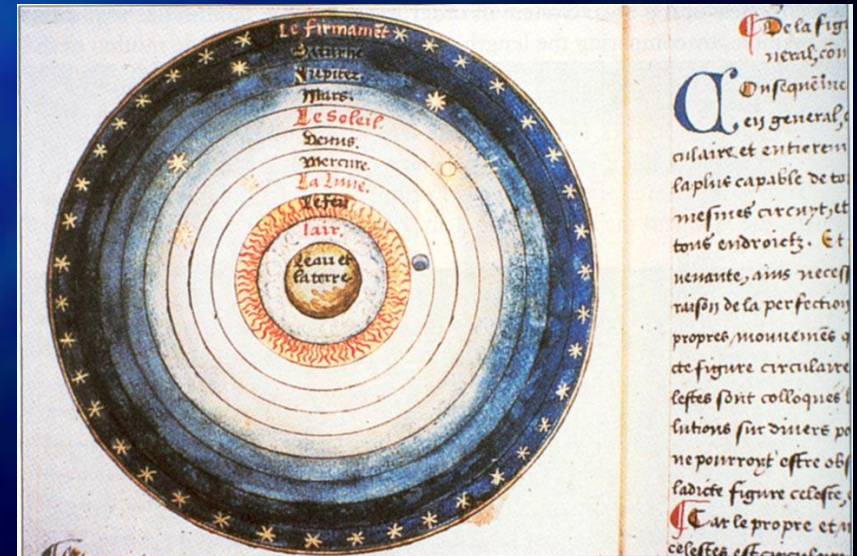 Le firmamēt
Saturne.
Jupiter.
Mars.
Le Soleil.
Venus.
Mercure.
La Lune.
Le feu
lair.
Leau et
la terre.
De la fig
neral, cōm
Consequēme
en general,
culaire, et entierem
la plus capable de to
mesmes circuyt, et
tous endroictz. Et
uenante, ains necess
raison de la perfection
propres mouuemēs q
cte figure circulaire
lestes sont colloques
lutions sur diuers po
ne pourroyt estre obs
ladicte figure celeste,
Car le propre et n
celestes est circulaire